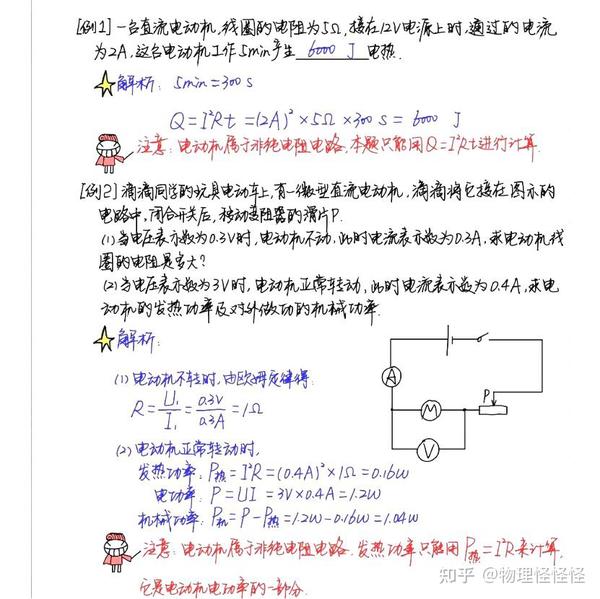 [例1] 一台直流电动机,线圈的电阻为5Ω,接在12V电源上时,通过的电流
为2A,这台电动机工作5min产生 6000 J 电热.
解析: 5min=300s
Q=I²Rt=(2A)²×5Ω×300s=6000 J
注意:电动机属于非纯电阻电路,本题只能用Q=I²Rt进行计算.
[例2] 滴滴同学的玩具电动车上,有一微型直流电动机,滴滴将它接在图示的
电路中,闭合开关后,移动变阻器的滑片P.
(1)当电压表示数为0.3V时,电动机不动,此时电流表示数为0.3A,求电动机线
圈的电阻是多大?
(2)当电压表示数为3V时,电动机正常转动,此时电流表示数为0.4A,求电
动机的发热功率及对外做功的机械功率.
解析:
(1)电动机不转时,由欧姆定律得:
R=U₁/I₁=0.3V/0.3A=1Ω
(2)电动机正常转动时,
发热功率:P热=I²R=(0.4A)²×1Ω=0.16W
电功率:P=UI=3V×0.4A=1.2W
机械功率:P机=P-P热=1.2W-0.16W=1.04W
A
M
P
V
注意:电动机属于非纯电阻电路.发热功率只能用P热=I²R来计算,
它是电动机电功率的一部分.
知乎 @物理怪怪怪